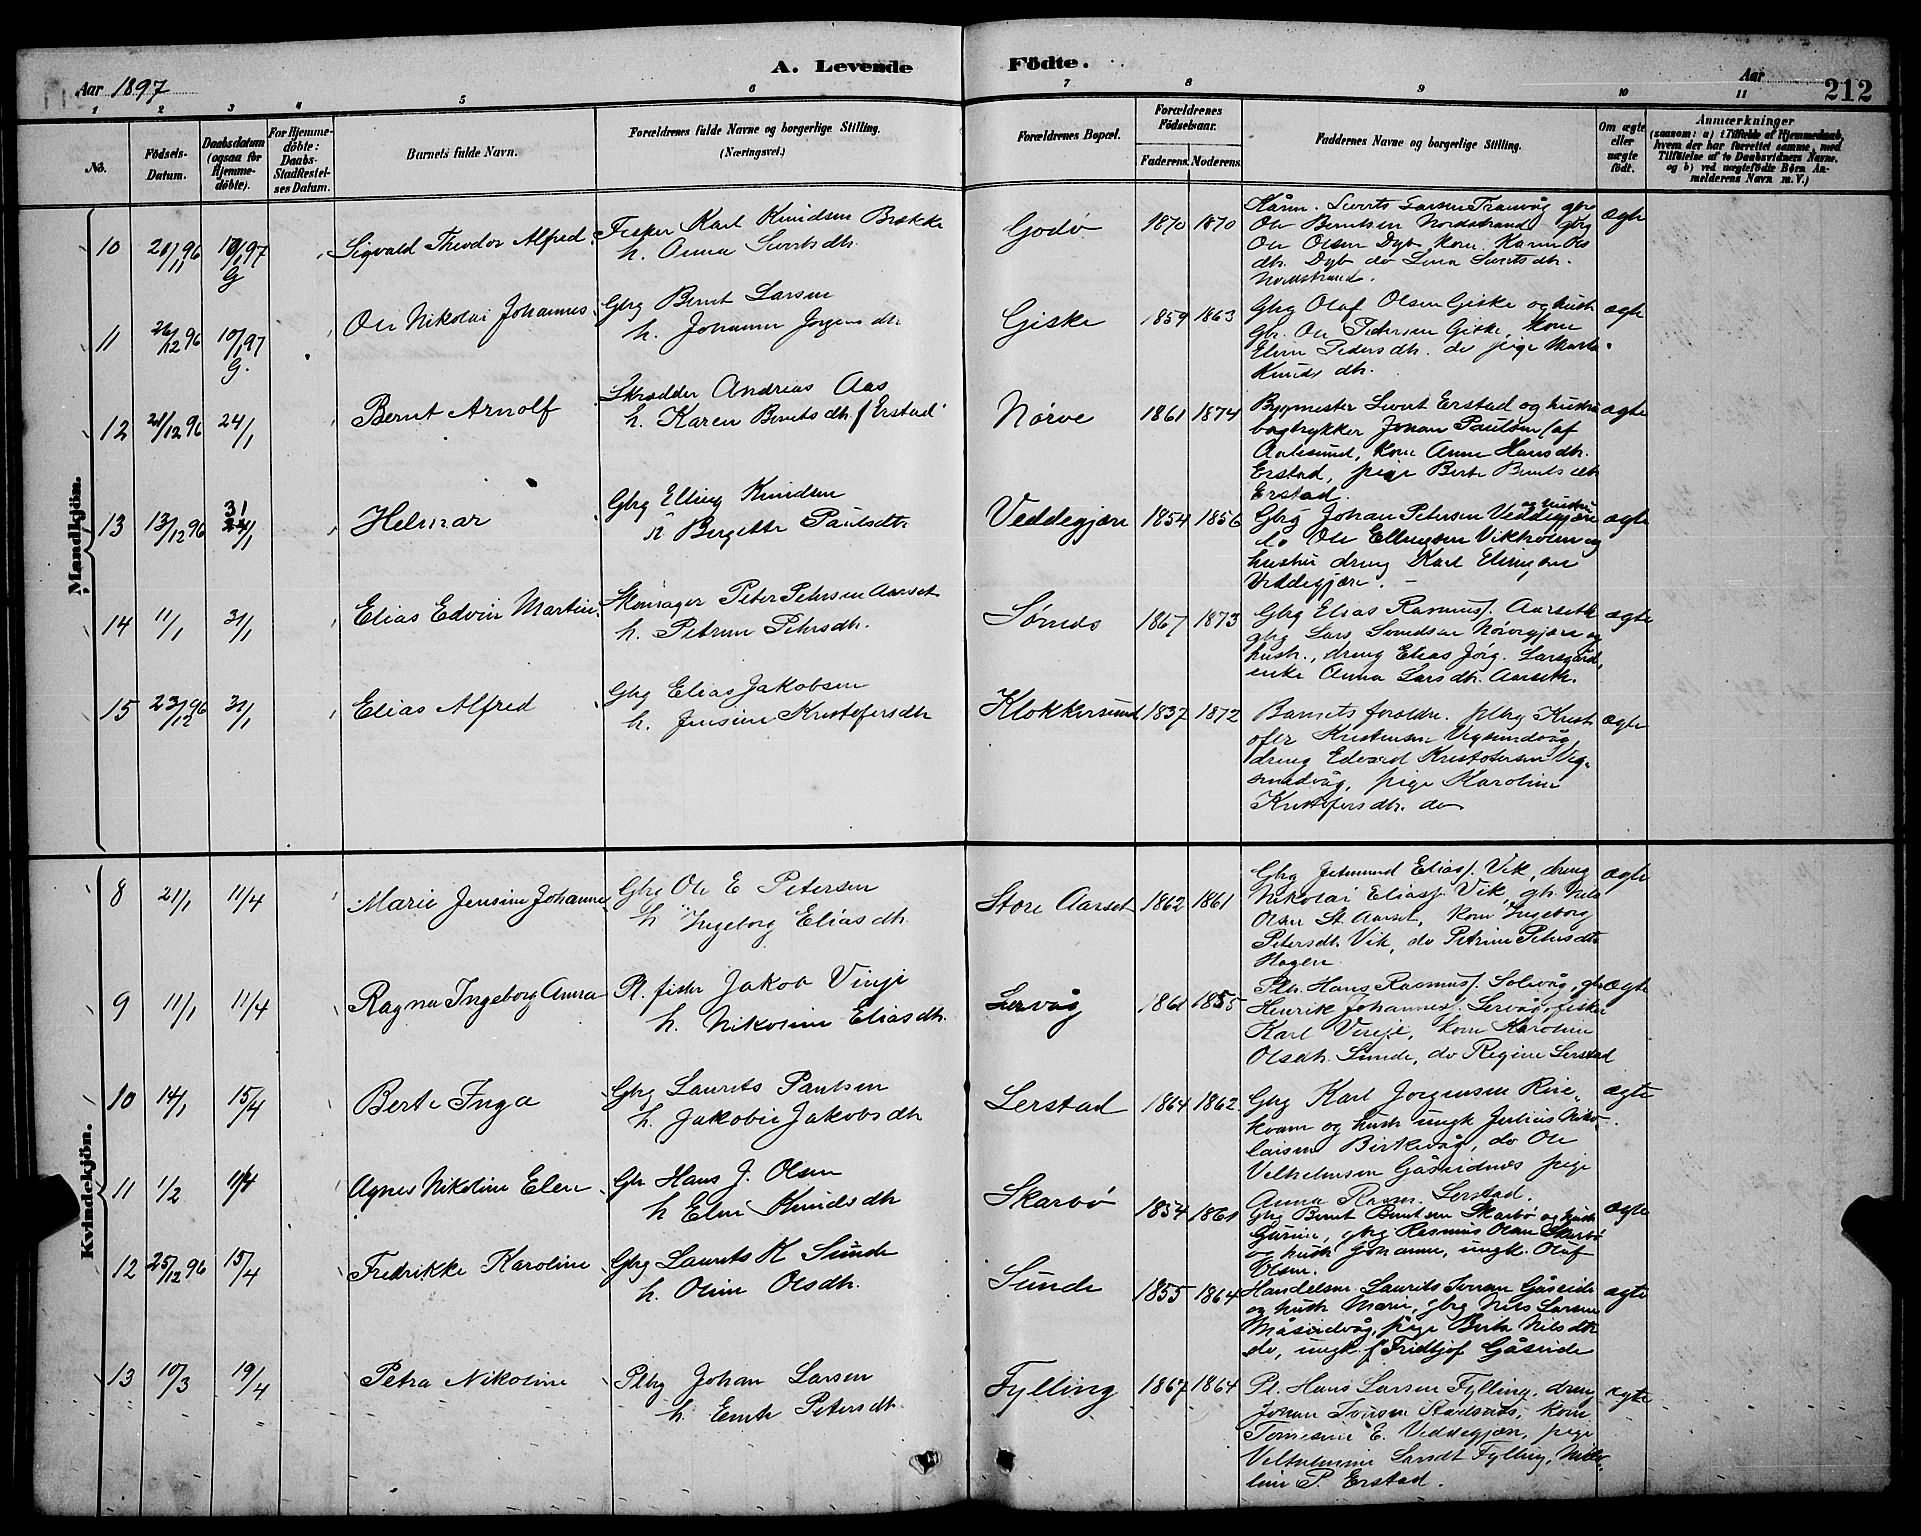 A. Levende Födte.
Aar 1897
Aar
212
1 2 3 4 5 6 7 8 9 10 11
No.
Födsels-Datum.
Daabsdatum (ogsaa for Hjemme-döbte).
For Hjemme-döbte: Daabs-Stadfestel-ses Datum.
Barnets fulde Navn.
Forældrenes fulde Navne og borgerlige Stilling. (Næringsvei.)
Forældrenes Bopæl.
Forældrenes Födselsaar.
Faderens. Moderens.
Faddernes Navne og borgerlige Stilling.
Om ægte eller uægte födt.
Anmærkninger
(saasom: a) i Tilfælde af Hjemmedaab,
hvem der har forrettet samme, med
Tilföielse af to Daabsvidners Navne,
og b) ved uægtefödte Börn An-
melderens Navn m. V.)
Mandkjön.
10 10/1 97 G Sigvald Theodor Alfred Fisker Karl Knudsen Brække
h. Anna Sivertsdh. Godø 1870 1870 ægte
Ole Berntsen Nordstrand, gbrg
Ole Olsen Dyb kone Karen Ols
dh. Dyb do Lina Sivertsdh.
Nordstrand.
11 26/12 96 10/1 97 G. Ole Nikolai Johannes Gbrg Bernt Larsen
h. Johanne Jørgensdh Giske 1859 1863 ægte
Gbrg Olaf Olsen Giske og hustr
Gbr. Ole Petersen Giske, kone
Eline Pedersdh. do pige Marta
Knudsdh.
12 21/12 96 24/1 Bernt Arnolf Skrædder Andreas Aas
h. Karen Berntsdh. f Erstad Nørve 1861 1874 ægte
Bygmester Sivert Erstad og hustru
bogtrykker Johan Paulsen (af
Aalesund, kone Anne Hansdh.
Erstad, pige Berte Berntsdh
Erstad.
13 13/12 96 31/1 Helmar Gbrg Elling Knudsen
h Bergitte Paulsdh Veddegjære 1854 1856 ægte
Gbrg Johan Petersen Veddegjære og hustru
do Ole Ellingsen Vikholm og
hustru dreng Karl Ellingsen
Veddegjære.
14 11/1 31/1 Elias Edvin Martin Skomager Peter Petersen Aarset
h. Petrine Petersdh. Sørnes 1867 1873 ægte
Gbrg Elias Rasmuss. Aarseth
gbrg Lars Knudsen Nørvegjære og
hustr., dreng Elias Jörg. Larsgård,
enke Anna Larsdh. Aarseth.
15 23/12 96 31/1 Elias Alfred Gbrg Elias Jakobsen
h. Jensine Kristofersdh Klokkersund 1837 1872 ægte
Barnets foreldre. plbrg Krist
ofer Kristensen Vegsundvåg
dreng Edvard Kristofersen Veg-
sundvåg, pige Karoline
Kristofersdh. do
Kvindekjön.
8 21/1 11/4 Marie Jensine Johanne Gbrg Ole E Petersen
h Ingeborg Eliasdh. Store Aarset 1862 1861 ægte
Gbrg Jetmund Eliass. Vik, dreng
Nikolai Eliass. Vik, gbr. Nils
Olsen St. Aarset, kone Ingeborg
Petersdh. Vik, do Petrine Petersdh
Hagen
9 11/1 11/4 Ragna Ingeborg Anna Pl. fisker Jakob Vinje
h. Nikoline Eliasdh. Lervåg 1861 1855 ægte
Plb. Hans Rasmuss. Solevåg, gbr
Henrik Johanness. Lervåg, fisker
Karl Vinje, kone Karoline
Olsdh. Sunde, do Regine Lerstad
10 14/1 15/4 Berte Inga Gbrg Laurits Paulsen
h. Jakobie Jakobsdh Lerstad 1864 1862 ægte
Gbrg Karl Jørgensen Rise-
kvam og hustr ungk Julius Niko-
laisen Birkevåg, do Ole
Vilhelmsen Gåseidnes pige
Anna Rasm. Lerstad.
11 1/2 11/4 Agnes Nikoline Elen Gbr Hans J. Olsen
h Eline Knudsdh Skarbø 1854 1861 ægte
Gbrg Bernt Berntsen Skarbø og hustr
Gurine, gbrg Rasmus Olsen Skarbø
og hustr Johanne, ungk. Oluf
Olsen.
12 25/12 96 15/4 Fredrikke Karoline Gbrg Laurits K Sunde
h. Oline Olsdh. Sunde 1855 1864 ægte
Handelsm. Laurits Iversen Gåseide
og hustr Marie, gbrg Nils Larsen
Måseidvåg, pige Berte Nilsdh
do, ungk. Fridtjof Gåseide
13 10/3 19/4 Petra Nikoline Plbrg Johan Larsen
h. Emte Petersdh Fylling 1867 1864 ægte
Pl. Hans Larsen Fylling, dreng
Johan Iversen, kone
E. Veddegjære, pige
Vilhelmine Larsdt Fylling, Niko-
line P. Erstad.